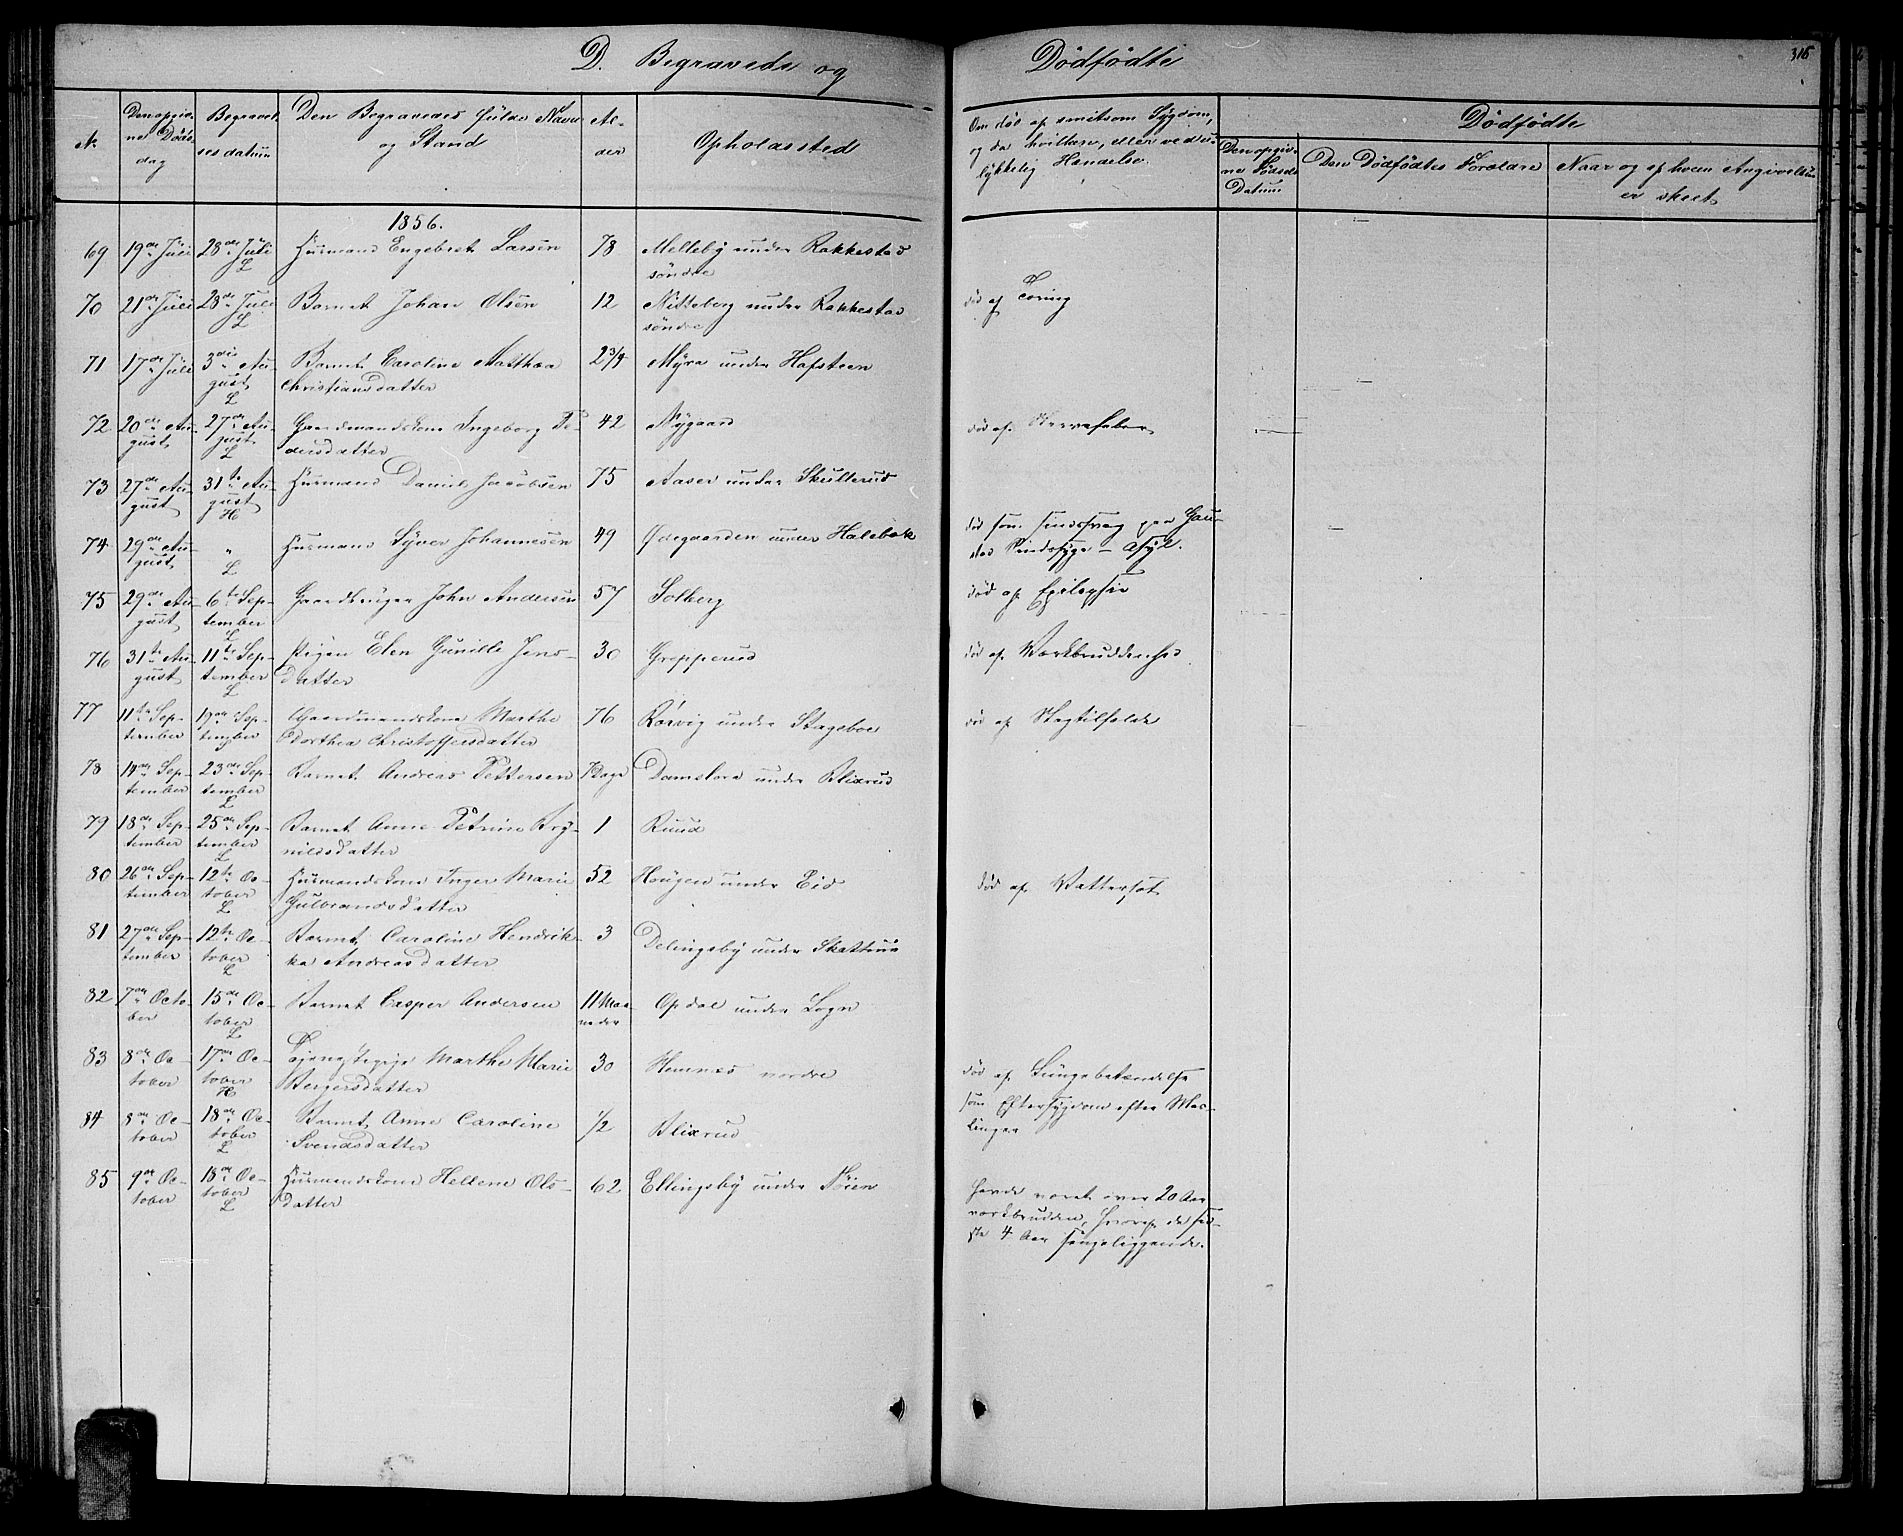 D. Begravede og Dødfødte
316
N.
Den opgiv-
ne Døds-
dag
Begravel-
ses datum
Den Begravedes fulde Navn
og Stand
Al-
der
Opholdssted
Om død af smitsom Sygdom,
og da hvilken, eller ved u-
lykkelig Hendelse.
Dødfødte
Den opgiv-
ne Fødsels
Datum
Den Dødfødtes Forældre
Naar og af hvem Angivelsen
er skeet
1856.
69 19de Juli 28de Juli L Huusmand Engebret Larsen 78 Melleby under Rakkestad
søndre
70 21de Juli 28de Juli L Barnet Johan Olsen 12 Nitteberg under Rakkestad
søndre
død af Tæring
71 17de Juli 3die Au-
gust L
Barnet Caroline Matthea
Christiansdatter
2 3/4 Myra under Hafsteen
72 20de Au-
gust
27de Au-
gust L
Gaardmandskone Ingeborg Pe-
dersdatter
42 Nygaard
død af Nervefeber
73 27de Au-
gust
31te Au-
gust H
Huusmand Daniel Jacobsen 75 Aaser under Skullerud
74 29de Au-
gust
" L
Huusmand Syver Johannesen 49 Ødegaarden under Halebak
død som sindssvag paa Gau-
stad Sindssyge-Asyl.
75 29de Au-
gust
6te Sep-
tember L
Gaardbruger John Andersen 57 Solberg
død af Epilepsie
76 31te Au-
gust
11te Sep-
tember L
Pigen Elen Gunille Jens-
datter
30 Grepperud
død af Værkbruddenhed
77 11te Sep-
tember
19de Sep-
tember
Gaardmandskone Marthe
Dorthea Christoffersdatter
76 Rørvig under Stageboe
død af Slagtilfælde
78 14de Sep-
tember
23de Sep-
tember L
Barnet Andreas Pettersen 7 Dage Damslora under Blixrud
79 18de Sep-
tember
25de Sep-
tember L
Barnet Anne Petrine Bry-
nildsdatter
1 Ruud
80 26de Sep-
tember
12te Oc-
tober L
Huusmandskone Inger Marie
Gulbrandsdatter
52 Hougen under Eid
død af Vattersot
81 27de Sep-
tember
12te Oc-
tober L
Barnet Caroline Hendrik-
ka Andreasdatter
3 Delingsby under Skattrud
82 7de Octo-
ber
15de Oc-
tober L
Barnet Casper Andersen 11 Maa-
neder
Opdal under Sogn
83 8de Oc-
tober
17de Oc-
tober H
Tjenestepige Marthe Marie
Bergersdatter
30 Hemnæs nordre
død af Lungebetændelse
som Eftersygdom efter Mes-
linger
84 8de Oc-
tober
18de Oc-
tober L
Barnet Anne Caroline
Svendsdatter
1/2 Blixrud
85 9de Oc-
tober
18de Oc-
tober L
Huusmandskone Hellene Ols-
datter
62 Ellingsby under Nøien
havde været over 20 Aar
værkbrudden, hvoraf de sid-
ste 4 Aar sengeliggende.